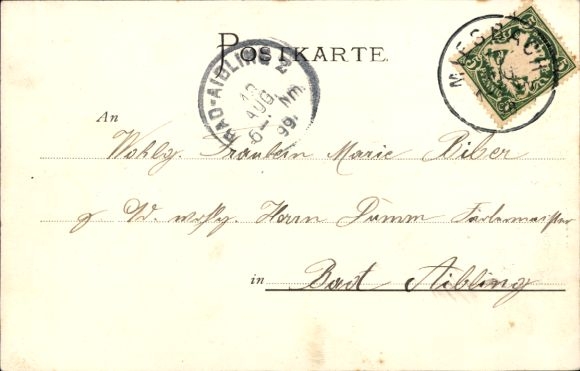 POSTKARTE.
BAD-AIBLING 2
AUG.
5-
Nm.
99.
MIESBACH
5 5
An
Wohlg. Fräulein Marie Biber
Ad. wohlg. Herrn
in Bad Aibling